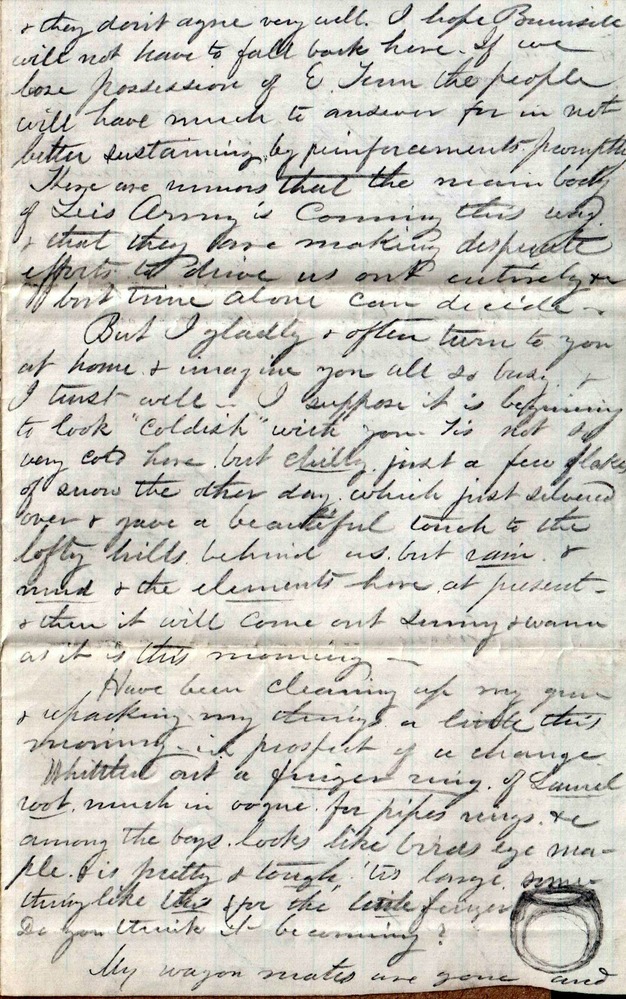 & they don't agree very well. I hope Burnside
will not have to fall back here. If we
lose possession of E. Tenn the people
will have much to answer for in not
better sustaining by reinforcements promptly
There are rumors that the main body
of Leis Army is Coming this way
& that they are making desperate
efforts to drive us out entirely &c
but time alone can decide -
But I gladly & often turn to you
at home & imagine you all so busy, &
I trust well - I suppose it is beginning
to look "coldish" with you. Tis not so
very cold here but chilly. just a few flakes
of snow the other day which just silvered
over & gave a beautiful touch to the
lofty hills behind us. but rain &
mud & the elements here at present -
& then it will come out sunny & warm
as it is this morning -
Have been cleaning up my gun
& repacking my things a little this
morning - in prospect of a change
Whittled out a finger ring of Laurel
root, much in vogue for pipes rings &c
among the boys. looks like birds eye ma-
ple. & is pretty & tough, 'tis large some-
thing like this & for the little finger
Do you think it becoming?
My wagon mates are gone and